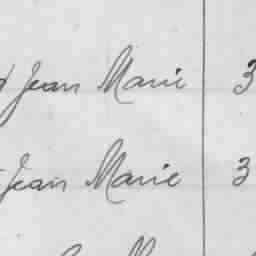 Jean Marie 3
Jean Marie 3